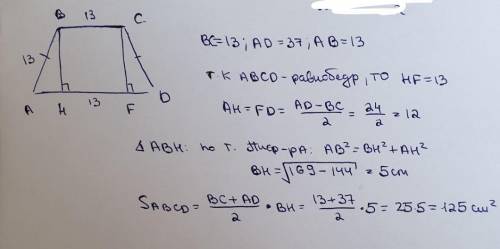 B 13 C
13
A H 13 F D
BC=13; AD=37, AB=13
т.к ABCD-равнобедр, то HF=13
AH=FD= (AD-BC)/2 = 24/2 = 12
Δ ABH: по т. Пиф-ра: AB²=BH²+AH²
BH=√(169-144) = 5cm
SABCD= (BC+AD)/2 · BH = (13+37)/2 · 5 = 25·5 = 125 cm²